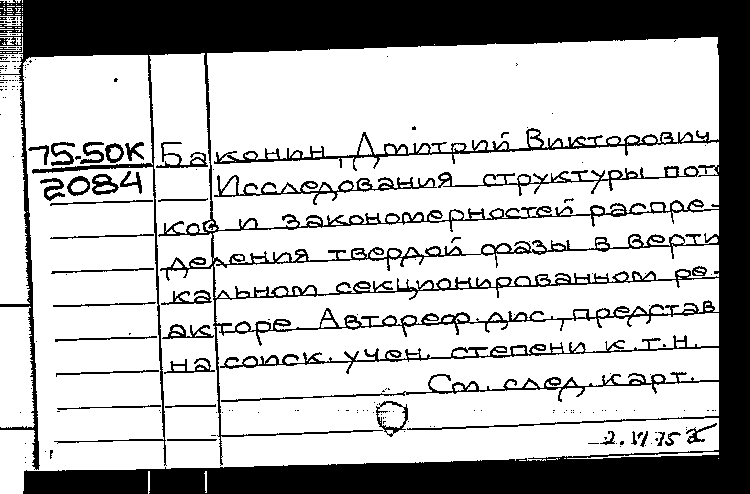 75-50К Баконин, Дмитрий Викторович
2084 Исследования структуры пото
ков и закономерностей распре-
деления твердой фазы в верти
кальном секционированном ре-
акторе. Автореф. дис., представ
на соиск. учен. степени к.т.н.
См. след. карт.